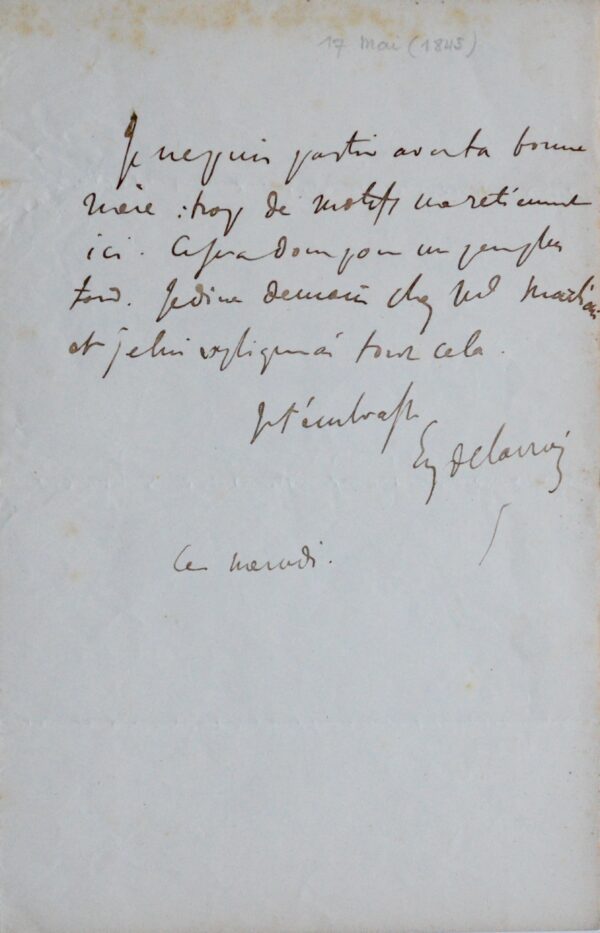 17 Mai (1843)
Je ne puis partir avec ta bonne
mère : trop de motifs me retiennent
ici. Ce sera donc pour un peu plus
tard. Je dine demain chez
et je lui expliquerai tout cela.
Je t'embrasse
Eug Delacroix
Ce mercredi.